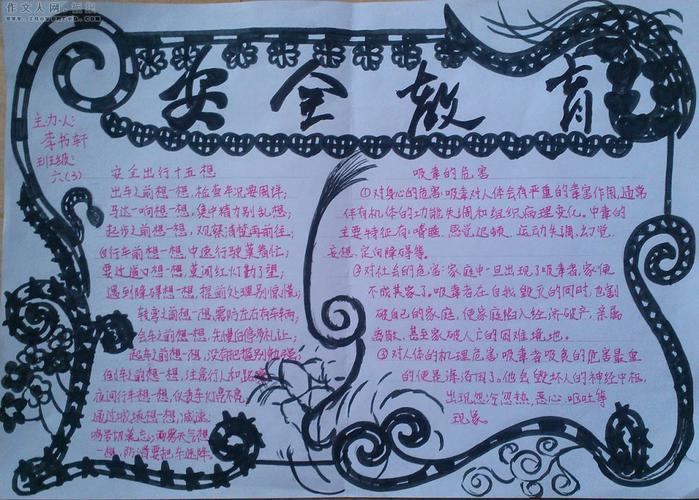 作文人网
安全教育
主力人:
李书轩
班级:
六(3)
安全出行十五想
出车之前想一想,检查车况要周详;
马达一响想一想,集中精力别乱想;
起步之前想一想,观察清楚再前往;
自行车前想一想,中速行驶莫着忙;
要过道口想一想,莫闯红灯勤了望;
遇到障碍想一想,提前处理别惊慌;
转弯之前想一想,需防左右有车辆;
会车之前想一想,先慢后停多礼让;
超车之前想一想,没有把握别勉强;
倒车之前想一想,注意行人和路
夜间行车想一想,仪表车灯
通过城镇想一想,减速
鸣号切莫忘;雨雾天气想
一想,防滑要把车速降。
吸毒的危害
①对身心的危害:吸毒对人体会有严重的毒害作用,通常
伴有机体的功能失调和组织病理变化。中毒的
主要特征有:嗜睡、感觉迟顿、运动失调、幻觉、
妄想、定向障碍等。
②对社会的危害:家庭中一旦出现了吸毒者,家便
不成其家了。吸毒者在自我毁灭的同时,也割
破自己的家庭,使家庭陷入经济破产、亲属
离散、甚至家破人亡的困难境地。
③对人体的机理危害:吸毒者吸食的危害最重
的便是海洛因了。他会毁坏人的神经中枢,
出现忽冷忽热、恶心、呕吐等
现象